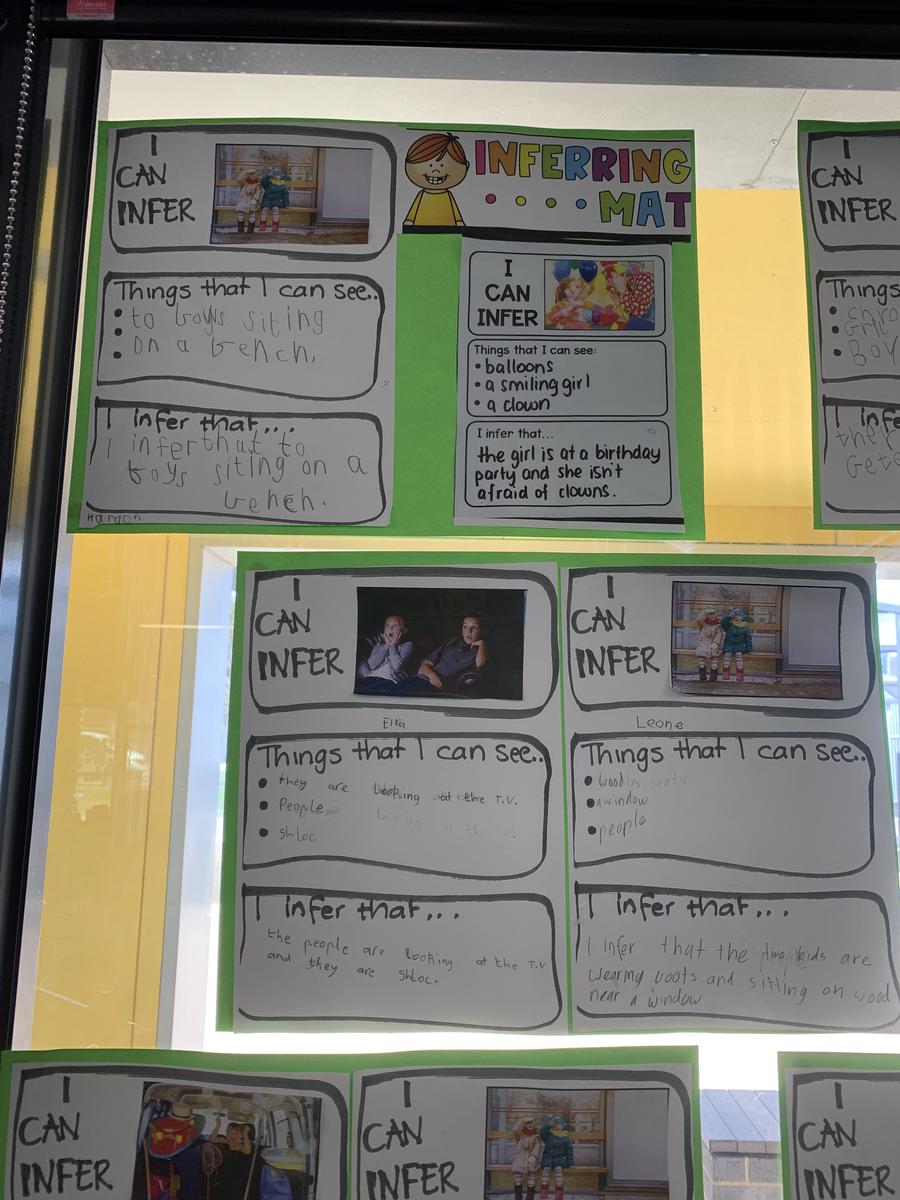 I
CAN
INFER
Things that I can see..
• to boys siting
•
• on a bench.
I infer that...
I infer that to
boys siting on a
bench.
INFERRING
MAT
I
CAN
INFER
Things that I can see:
• balloons
• a smiling girl
• a clown
I infer that...
the girl is at a birthday
party and she isn't
afraid of clowns.
I
CAN
INFER
Things
•
• Grl
• Boy
I infe
I
CAN
INFER
Ella
Things that I can see..
• they are looking at the T.V.
• People
• shloc
I infer that...
the people are looking at the T.V
and they are shloc.
I
CAN
INFER
Leone
Things that I can see..
• woodn seats
• a window
• people
I infer that...
I infer that the two kids are
wearing boots and sitting on wood
near a window
I
CAN
INFER
I
CAN
INFER
I
CAN
INFER